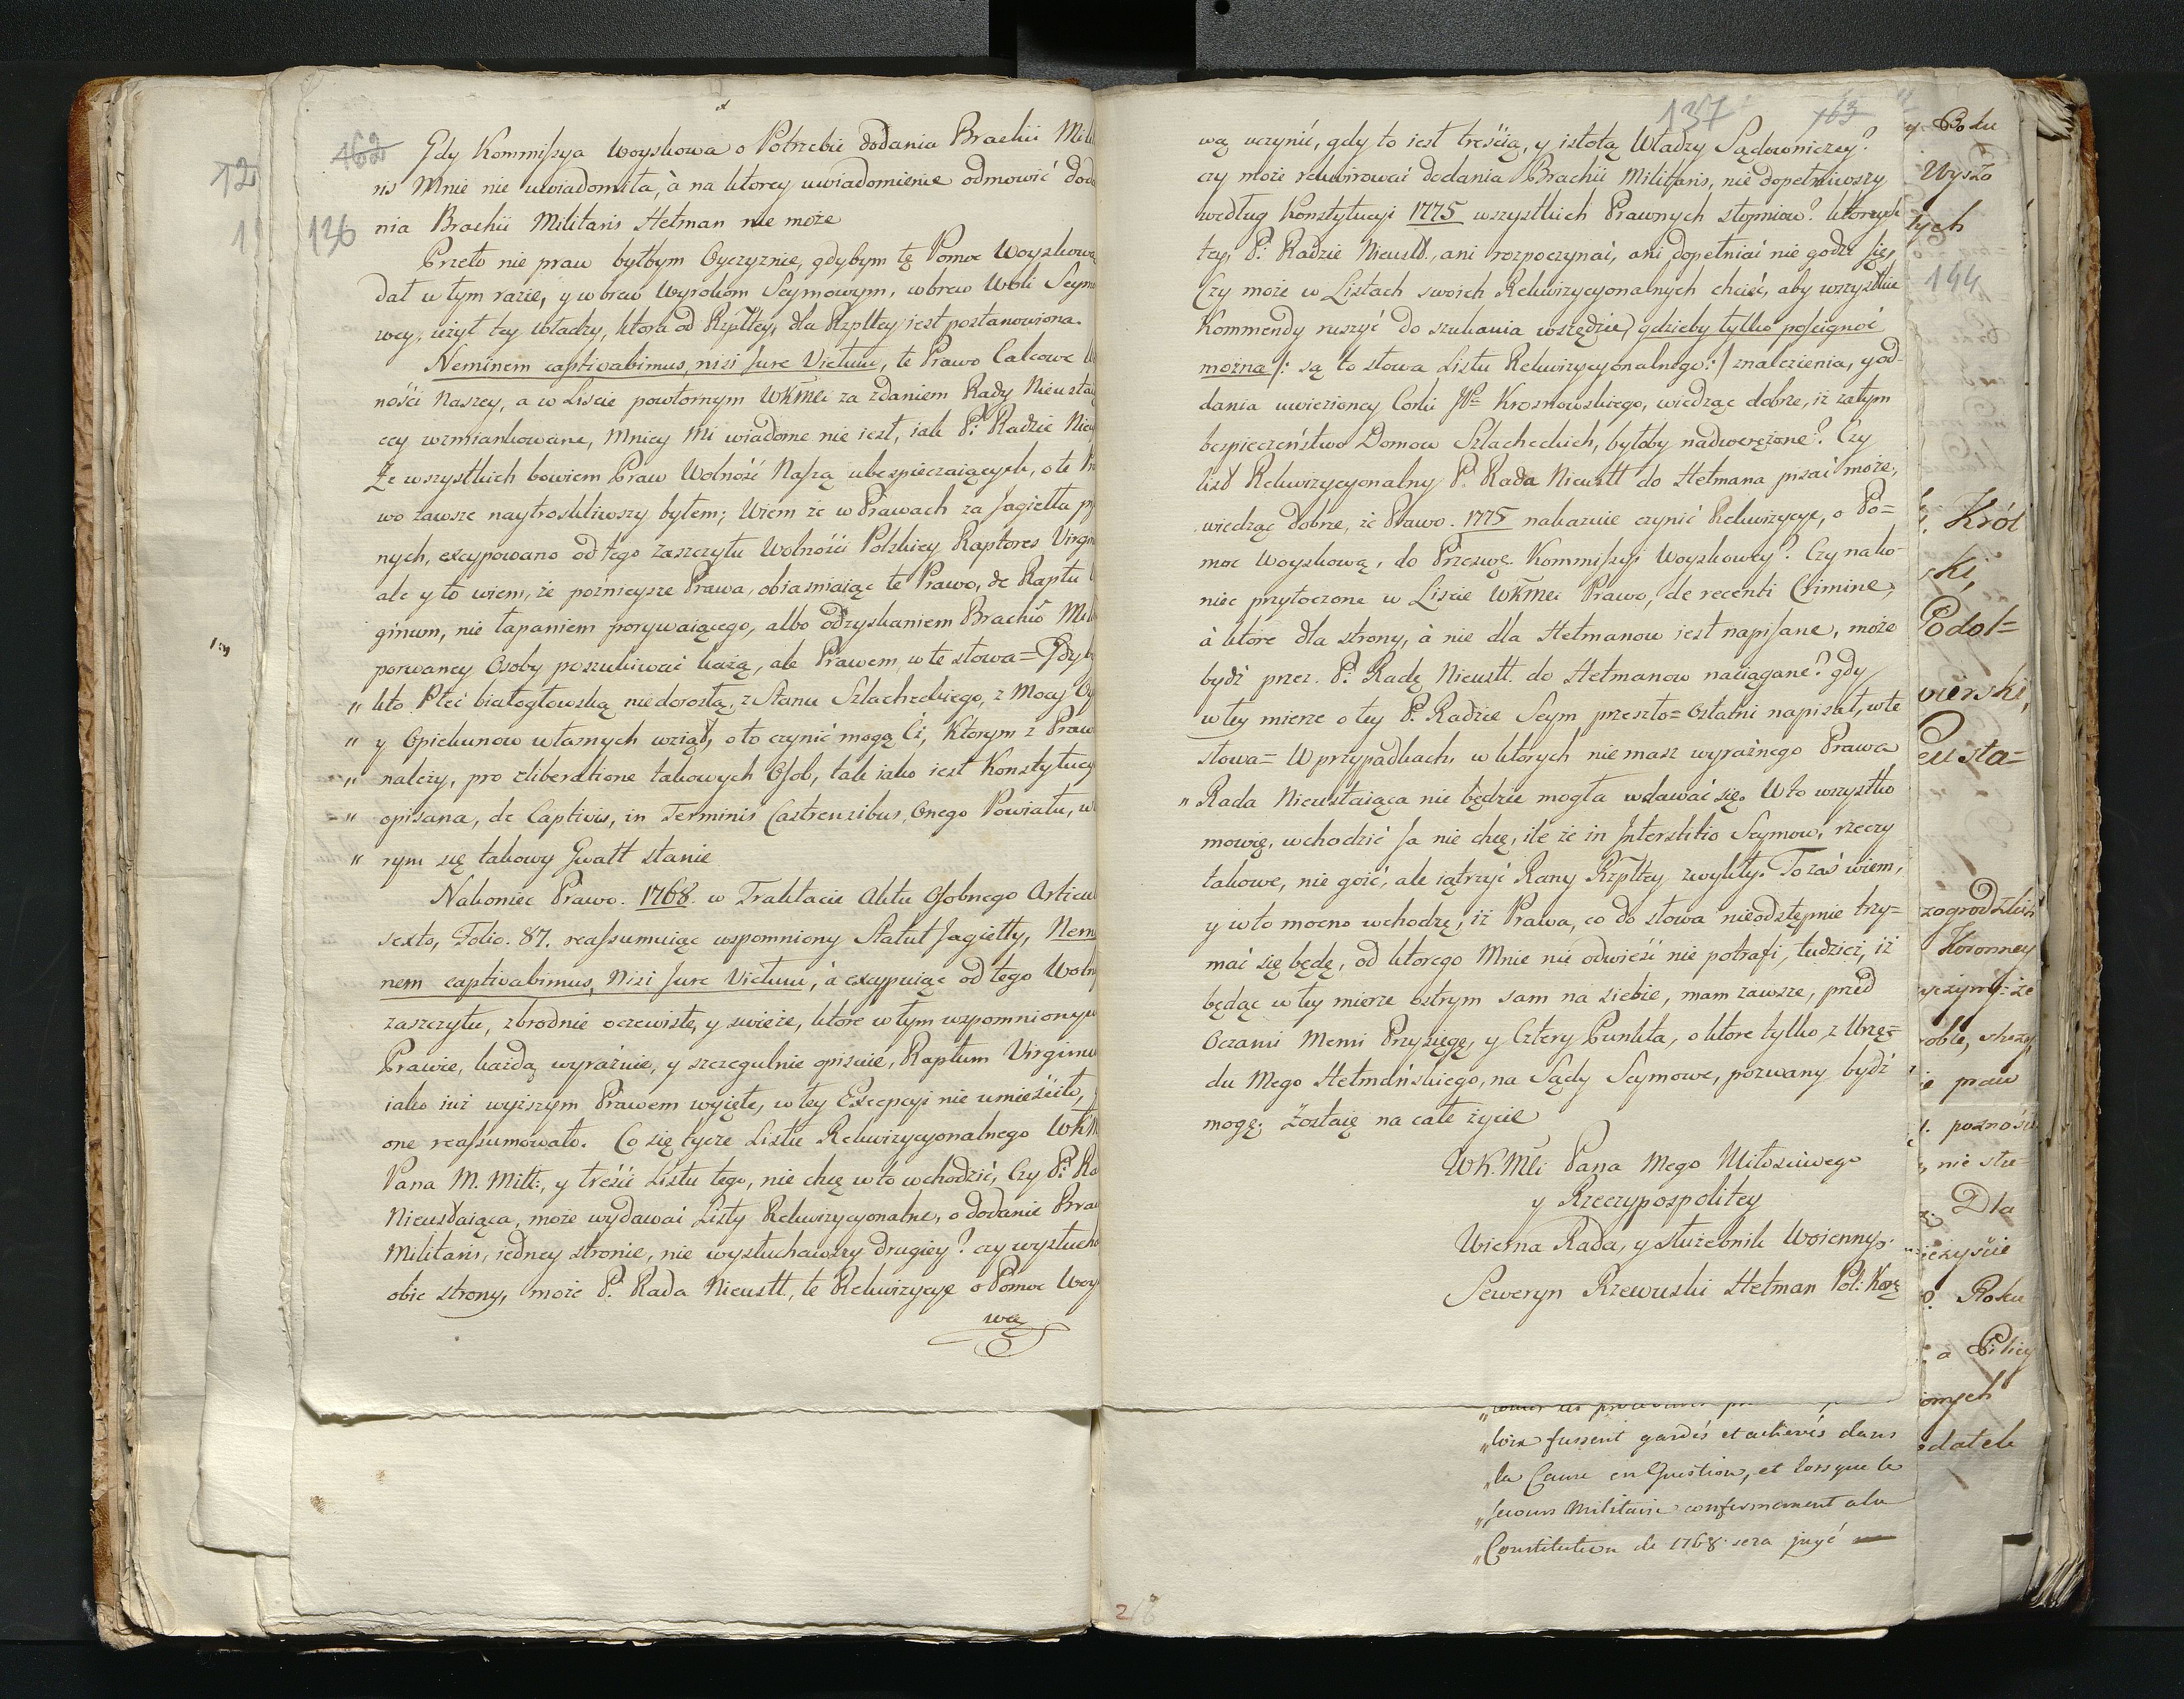 162
136
Gdy Kommissya Woyskowa o Potrzebie dodania Brachii Mili
ris Mnie nie uwiadomiła, à na ktorey uwiadomienie odmowić doda
nia Brachii Militaris Hetman nie może
Przeto nie praw byłbym Oyczyznie, gdybym tę Pomoc Woyskową
dał w tym razie, y wbrew Wyrokom Seymowym, wbrew Woli Seymo
wey, użył tey władzy, ktora od Rzpltey, dla Rzpltey iest postanowiona.
Neminem captivabimus, nisi Jure Victum, te Prawo Całowe W
ności Naszey, a w Liscie powtornym WKMci za zdaniem Rady Nieustai
ący wzmiankowane, mniey Mi wiadome nie iest, iak P: Radzie Nieu
Ze wszystkich bowiem Praw Wolność Naszą ubespieczaiących, o te Pra
wo zawsze naytroskliwszy byłem; Wiem ze w Prawach za Jagiełła p
nych, excypowano od tego zaszczytu Wolności Polskiey Raptores Virgin
ale y to wiem, że poznieysze Prawa, obiasniaiąc te Prawo, de Raptu
ginum, nie łapaniem porywaiącego, albo odzyskaniem Brachiô Mili
porwaney Osoby poszukiwać każą, ale Prawem, w te słowa = Gdyb
" kto Płci białogłowską niedorosłą, z Stanu Szlacheckiego, z Mocy Oy
" y Opiekunow własnych wziął, o to czynić mogą Ci, Ktorym z Praw
" należy, pro eliberatione takowych Osob, tak iako iest Konstytucy
" opisana, de Captivis, in Terminis Castrensibus, Onego Powiatu, w
" rym się takowy Gwałt stanie
Nakoniec Prawo. 1768. w Traktacie Aktu Osobnego Articul
sexto, Folio. 87. reassumuiąc wspomniony Statut Jagiełły, Nemi
nem captivabimus, Nisi Jure Victum, à excypuiąc od tego Wolno
zaszczytu, zbrodnie oczewiste, y swieże, ktore w tym wspomnionym
Prawie, każdą wyraźnie, y szczegulnie opisuie, Raptum Virginum
iako iuż wyższym Prawem wyięte, w tey Excepcyi nie umieściło,
one reassumowało. Co się tycze Listu Rekwizycyonalnego WKM
Pana M. Mill:, y treści Listu tego, nie chcę w to wchodzić, Czy P: Ra
Nieustaiąca, może wydawać Listy Rekwizycyonalne, o dodanie Brac
Militaris, iedney stronie, nie wysłuchawszy drugiey? czy wysłucha
obie strony, może P: Rada Nieustt., te Rekwizycye o Pomoc Woy
wą
137
163
wą uczynić, gdy to iest treścią, y istotą Władzy Sądowniczey?
czy może rekwirować dodania Brachii Militaris, nie dopełniwszy
według Konstytucyi 1775 wszystkich Prawnych stopniow? ktorych
tey P: Radzie Nieustt., ani rozpoczynać, ani dopełniać nie godzi się,
Czy może w Listach swoich Rekwizycyonalnych chcieć, aby wszystkie
Kommendy ruszyć do szukania wszędzie, gdzieby tylko posięgnąć
można /: są to słowa Listu Rekwizycyonalnego :/ znalezienia, y od
dania uwiezioney Corki JP Krosnowskiego, wiedząc dobrze, iż zatym
bezpieczeństwo Domow Szlacheckich, byłoby nadwerężone? Czy
list Rekwizycyonalny P: Rada Nieustt do Hetmana pisać może,
wiedząc dobrze, że Prawo. 1775 nakazuie czynić Rekwizycye, o Po=
moc Woyskową, do Przeswę. Kommissyi Woyskowey? Czy nako
niec przytoczone w Liscie WKMci Prawo, de recenti Crimine,
à ktore dla strony, à nie dla Hetmanow iest napisane, może
bydź przez P: Radę Nieustt. do Hetmanow naciągane? gdy
w tey mierze o tey P: Radzie Seym przeszło= Ostatni napisał, w te
słowa= W przypadkach, w ktorych niemasz wyraźnego Prawa
" Rada Nieustaiąca nie będzie mogła wdawać się. W to wszystko
mowię, wchodzić Ja nie chcę, ile że in Interstitio Seymow, rzeczy
takowe, nie goić, ale iątrzyć Rany Rzpltey zwykły. To zaś wiem,
y w to mocno wchodzę, iż Prawa, co do słowa nieodstępnie trzy=
mać się będę, od ktorego Mnie nie odwieść nie potrafi, tudzież, iż
będąc w tey mierze ostrym sam na siebie, mam zawsze, przed
Oczami Memi Przysięgę, y Cztery Punkta, o ktore tylko, z Urzę=
du Mego Hetmańskiego, na Sądy Seymowe, pozwany bydź
mogę; Zostaię na całe życie
WK.Mci Pana Mego Miłosciwego
y Rzeczypospolitey
Wierna Rada, y służebnik Woienny.
Seweryn Rzewuski Hetman Pol: Kor
" loix fussent gardés et achevés dans
" la Cause en Question, et lorsque le
" secours Militaire conformement a la
" Constitution de 1768 sera jugé
216
12
y Roku
Wyszo
tych
144
Król
ski,
Podol=
Eusta=
Koronney
praw
nie stre=
Dla
Roku
a Pilicy
omych
datek